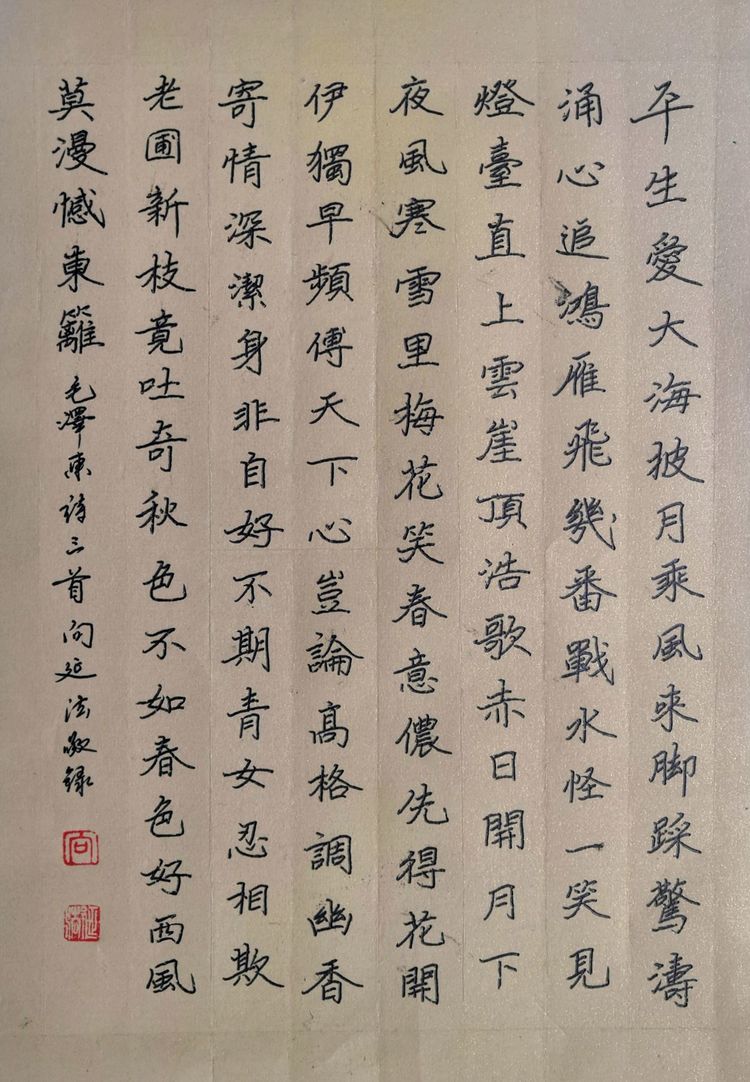 平生愛大海披月乘風来脚踩驚濤
涌心追鴻雁飛幾番戰水怪一笑見
燈臺直上雲崖頂浩歌赤日開月下
夜風寒雪里梅花笑春意儂先得花開
伊獨早頻傅天下心豈論高格調幽香
寄情深潔身非自好不期青女忍相欺
老圃新枝竟吐奇秋色不如春色好西風
莫漫憾東籬毛澤東詩三首向延法敬録
向